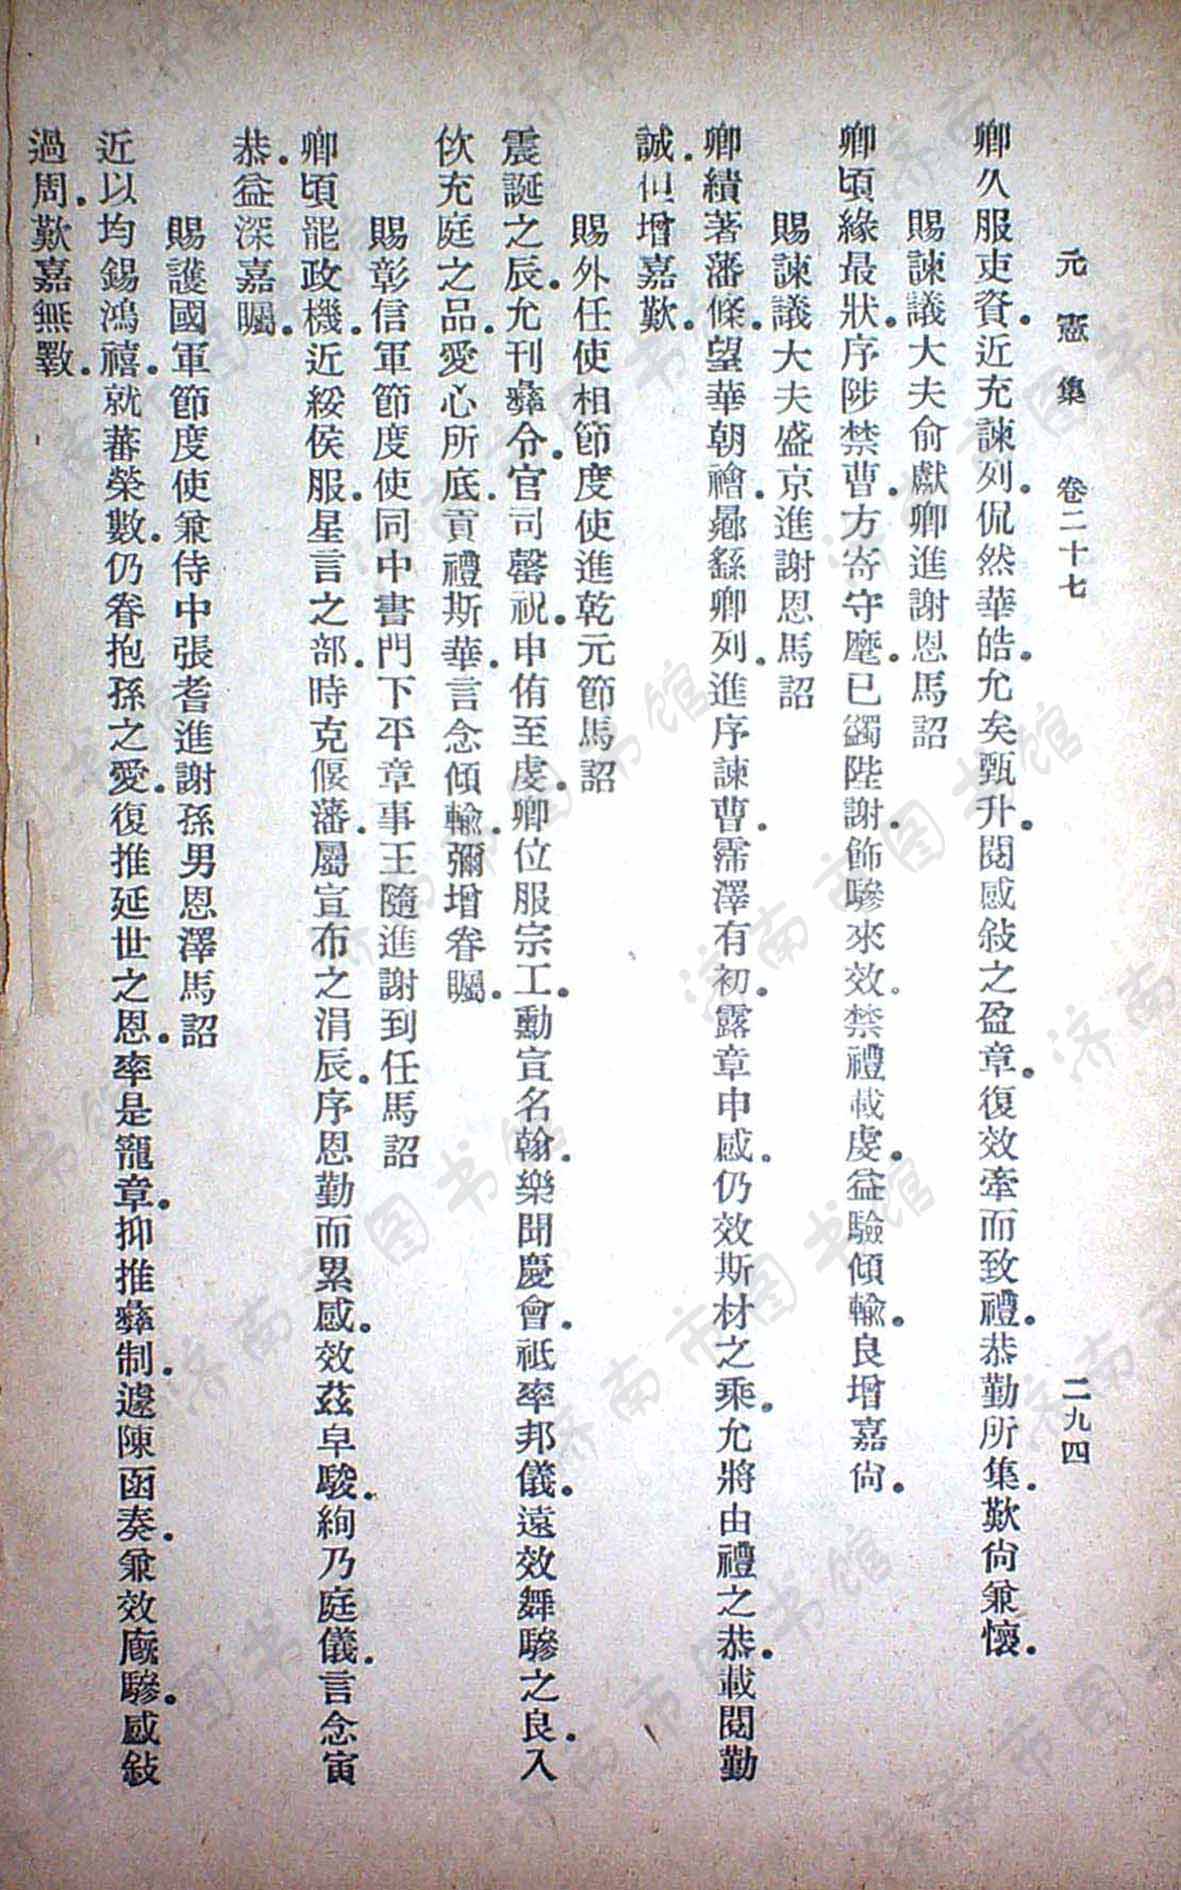 元憲集　卷二十七　二九四
卿久服吏資。近充諫列。侃然華皓。允矣甄升。閱感敍之盈章。復效牽而致禮。恭勤所集。歎尙兼懷。
賜諫議大夫俞獻卿進謝恩馬詔
卿頃緣最狀。序陟禁曹。方寄守麾。已蠲陛謝。飾驂來效。禁禮載虔。益驗傾輸。良增嘉尙。
賜諫議大夫盛京進謝恩馬詔
卿績著藩條。望華朝禬。曏繇卿列。進序諫曹。霈澤有初。露章申感。仍效斯材之乘。允將由禮之恭。載閱勤
誠。但增嘉歎。
賜外任使相節度使進乾元節馬詔
震誕之辰。允刊彝令。官司罄祝。申侑至虔。卿位服宗工。勳宣名翰。樂聞慶會。祗率邦儀。遠效舞驂之良。入
佽充庭之品。愛心所底。貢禮斯華。言念傾輸。彌增眷矚。
賜彰信軍節度使同中書門下平章事王隨進謝到任馬詔
卿頃罷政機。近綏侯服。星言之部。時克偃藩。屬宣布之涓辰。序恩勤而累感。效茲皁駿。絢乃庭儀。言念寅
恭。益深嘉矚。
賜護國軍節度使兼侍中張耆進謝孫男恩澤馬詔
近以均錫鴻禧。就蕃榮數。仍眷抱孫之愛。復推延世之恩。率是寵章。抑推彝制。遽陳函奏。兼效廐驂。感敍
過周。歎嘉無斁。